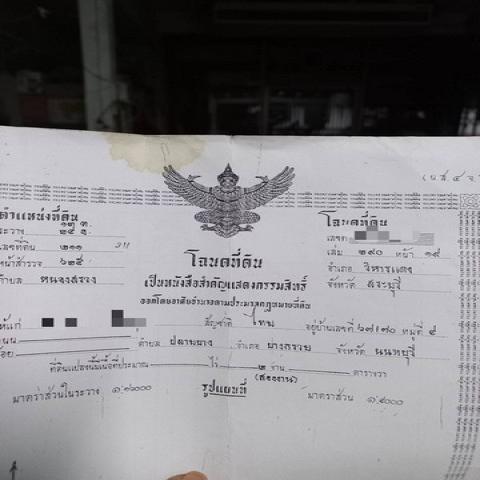 (น.ส.๔ จ
ตำแหน่งที่ดิน
โฉนดที่ดิน
ระวาง
เลขที่
เลขที่ดิน ๒๑๑
โฉนดที่ดิน
เล่ม ๒๙๐ หน้า ๑๙
หน้าสำรวจ ๖๒๕
เป็นหนังสือสำคัญแสดงกรรมสิทธิ์
อำเภอ วิหารแดง
ตำบล หนองสรวง
ออกโดยอาศัยอำนาจตามประมวลกฎหมายที่ดิน
จังหวัด สระบุรี
ให้แก่ สัญชาติ ไทย อยู่บ้านเลขที่ ๖๗/๗๐ หมู่ที่ ๕
ถนน ตำบล ปลายบาง อำเภอ บางกรวย จังหวัด นนทบุรี
ที่ดินแปลงนี้มีเนื้อที่ประมาณ ไร่ ๒ งาน ตารางวา
(สองงาน)
มาตราส่วนในระวาง ๑:๔๐๐๐ รูปแผนที่ มาตราส่วน ๑:๔๐๐๐